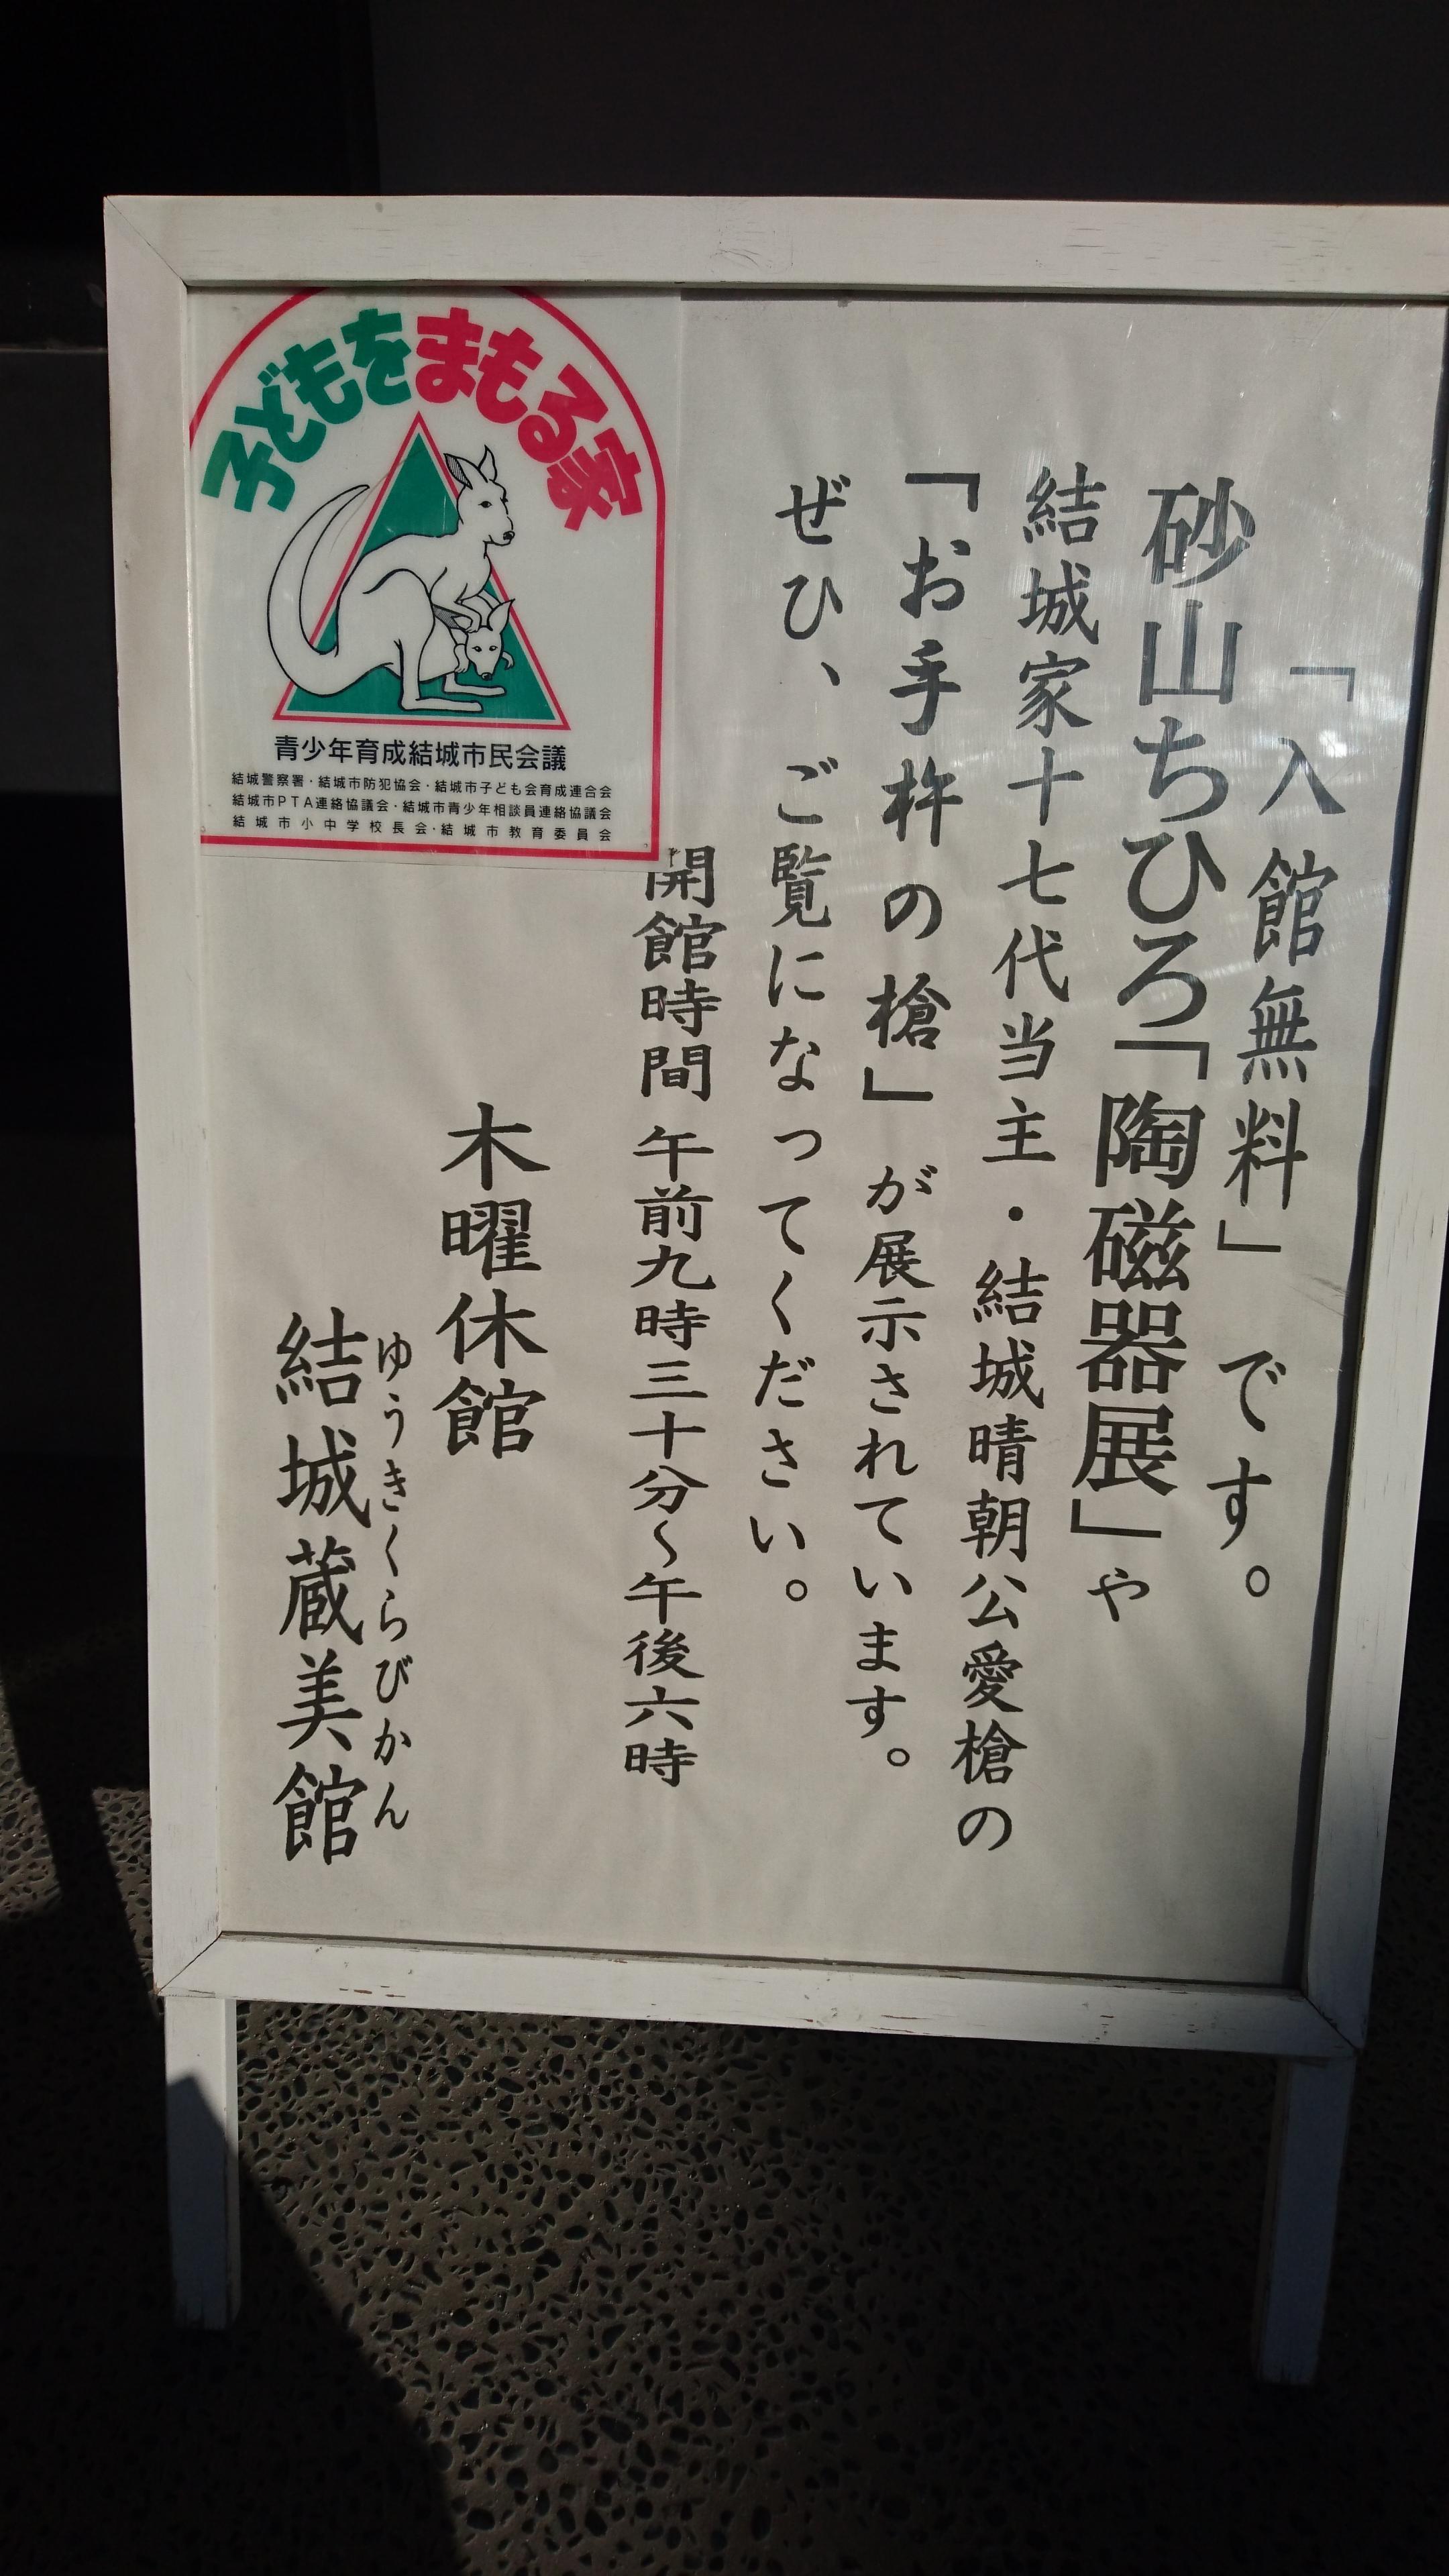 「入館無料」です。
砂山ちひろ「陶磁器展」や
結城家十七代当主・結城晴朝公愛槍の
「お手杵の槍」が展示されています。
ぜひ、ご覧になってください。
開館時間 午前九時三十分〜午後六時
木曜休館
ゆうきくらびかん
結城蔵美館
子どもをまもる家
青少年育成結城市民会議
結城警察署・結城市防犯協会・結城市子ども会育成連合会
結城市PTA連絡協議会・結城市青少年相談員連絡協議会
結城市小中学校長会・結城市教育委員会